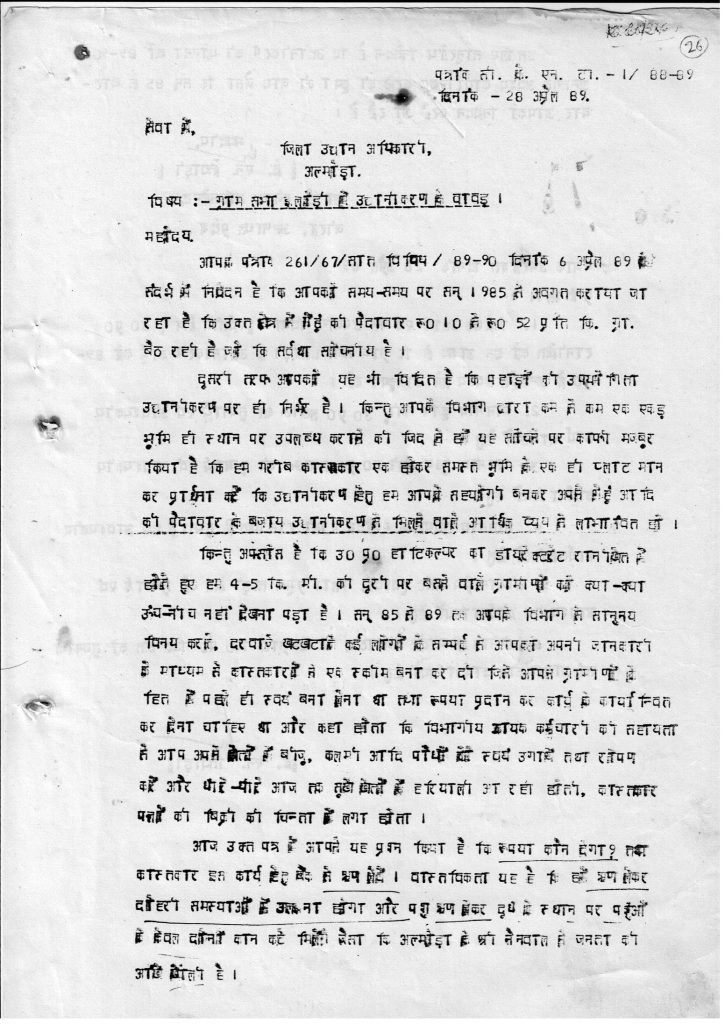 26
पत्रांक ती. के. एन. टी. - 1/ 88-89
दिनांक - 28 अप्रैल 89.
सेवा में,
जिला उद्यान अधिकारी,
अल्मोड़ा.
विषय :- ग्राम सभा में उद्यानीकरण के बावद ।
महोदय,
आपके पत्रांक 261/67/सात विविध / 89-90 दिनांक 6 अप्रैल 89 के
संदर्भ में निवेदन है कि आपको समय-समय पर सन् 1985 से अवगत कराया जा
रहा है कि उक्त क्षेत्र में गेहूं की पैदावार रू0 10 से रू0 52 प्रति कि. ग्रा.
बैठ रही है जो कि सर्वथा सोचनीय है ।
दूसरी तरफ आपको यह भी विदित है कि पहाड़ों की उपयोगिता
उद्यानीकरण पर ही निर्भर है । किन्तु आपके विभाग द्वारा कम से कम एक एकड़
भूमि ही स्थान पर उपलब्ध कराने की जिद ने हमें यह सोचने पर काफी मजबूर
किया है कि हम गरीब कास्तकार एक होकर समस्त भूमि को एक ही प्लाट मान
कर प्रार्थना करें कि उद्यानीकरण हेतु हम आपके सहयोगी बनकर अपने गेहूं आदि
की पैदावार के बजाय उद्यानीकरण से मिलने वाले आर्थिक व्यय से लाभान्वित हों ।
किन्तु अफसोस है कि उ0 प्र0 हार्टिकल्चर का डायरेक्टरेट रानीखेत में
होते हुए हम 4-5 कि. मी. की दूरी पर बसने वाले ग्रामीणों को क्या-क्या
ऊंच-नीच नहीं देखना पड़ा है । सन् 85 से 89 तक आपके विभाग से सानुनय
विनय करते, दरवाजे खटखटाते कई लोगों के सम्पर्क से आपको अपनी जानकारी
के माध्यम से कास्तकारों ने एक स्कीम बना कर दी जिसे आपने ग्रामीणों के
हित में पहले ही स्वयं बना लेना था तथा रूपया प्रदान कर कार्य को कार्यान्वित
कर देना चाहिए था और कहा होता कि विभागीय सहायक कर्मचारी की सहायता
से आप अपने खेतों में बीजू, कलमी आदि पौधों को स्वयं उगायें तथा रोपण
करें और धीरे-धीरे आज तक सूखे खेतों में हरियाली आ रही होती, कास्तकार
फलों की बिक्री की चिन्ता में लगा होता ।
आज उक्त पत्र में आपने यह प्रश्न किया है कि रूपया कौन देगा? तथा
कास्तकार इस कार्य हेतु बैंक से ऋण लेवें । वास्तविकता यह है कि हमें ऋण लेकर
दोहरी समस्याओं में उलझना होगा और पशु ऋण लेकर दूध के स्थान पर पशुओं
के केवल दोनों कान कटे मिलेंगे जैसा कि अल्मोड़ा के श्री नैनवाल ने जनता की
आंखें खोली है ।